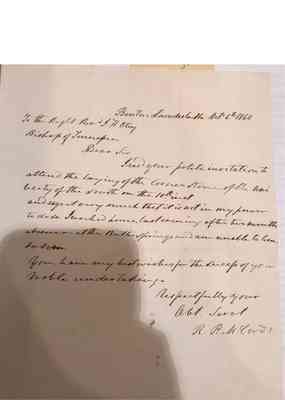 Oct 6th 1860
To the Right Revd J H Otey
Bishop of Tennessee
Dear Sir
I find your polite invitation to
attend the laying of the Corner Stone of the Uni
versity of the South on the 10th inst
and regret very much that it is not in my power
to do so I reached home last evening after two months
absence at the Springs and am unable to
so soon
You have my best wishes for the success of your
Noble undertaking
Respectfully your
Obt Servt